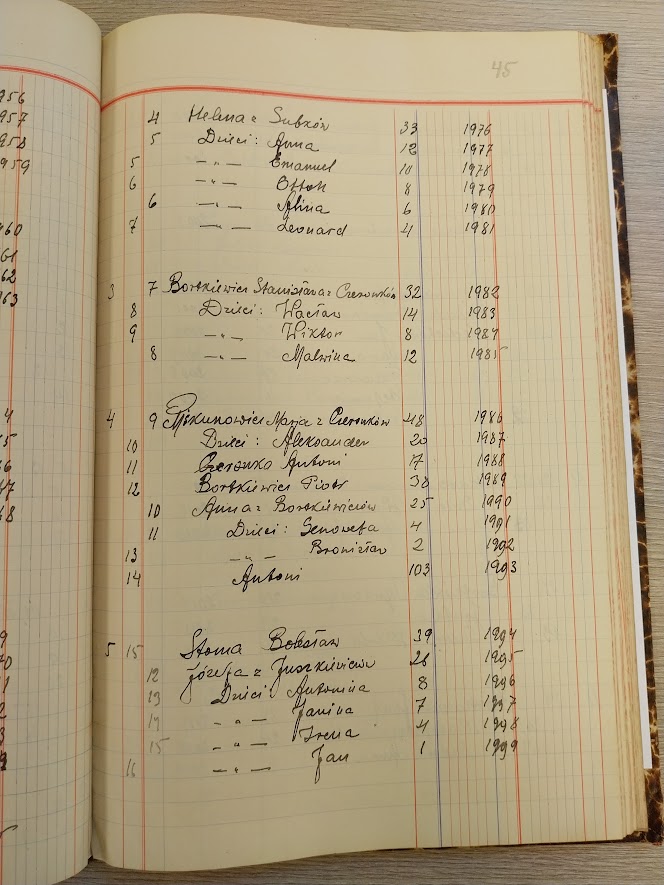 45
956
957
958
959
960
61
62
63
4 Helena z Subków 33 1976
5 Dzieci: Anna 12 1977
5 -„- Emanuel 10 1978
6 -„- Ottok 8 1979
6 -„- Alina 6 1980
7 -„- Leonard 4 1981
3 7 Bortkiewicz Stanisława z Czeronków 32 1982
8 Dzieci: Wacław 14 1983
9 -„- Wiktor 8 1984
8 -„- Malwina 12 1985
4 9 Mikunowicz Marja z Czeronków 48 1986
10 Dzieci: Aleksander 20 1987
11 Czeronko Antoni 17 1988
12 Bortkiewicz Piotr 30 1989
10 Anna z Bortkiewiczów 25 1990
11 Dzieci: Genowefa 4 1991
13 -„- Bronisław 2 1992
14 Antoni 103 1993
5 15 Stoma Bolesław 39 1994
12 Józefa z Juszkiewiczów 26 1995
13 Dzieci: Antonina 8 1996
14 -„- Janina 7 1997
15 -„- Irena 4 1998
16 -„- Jan 1 1999